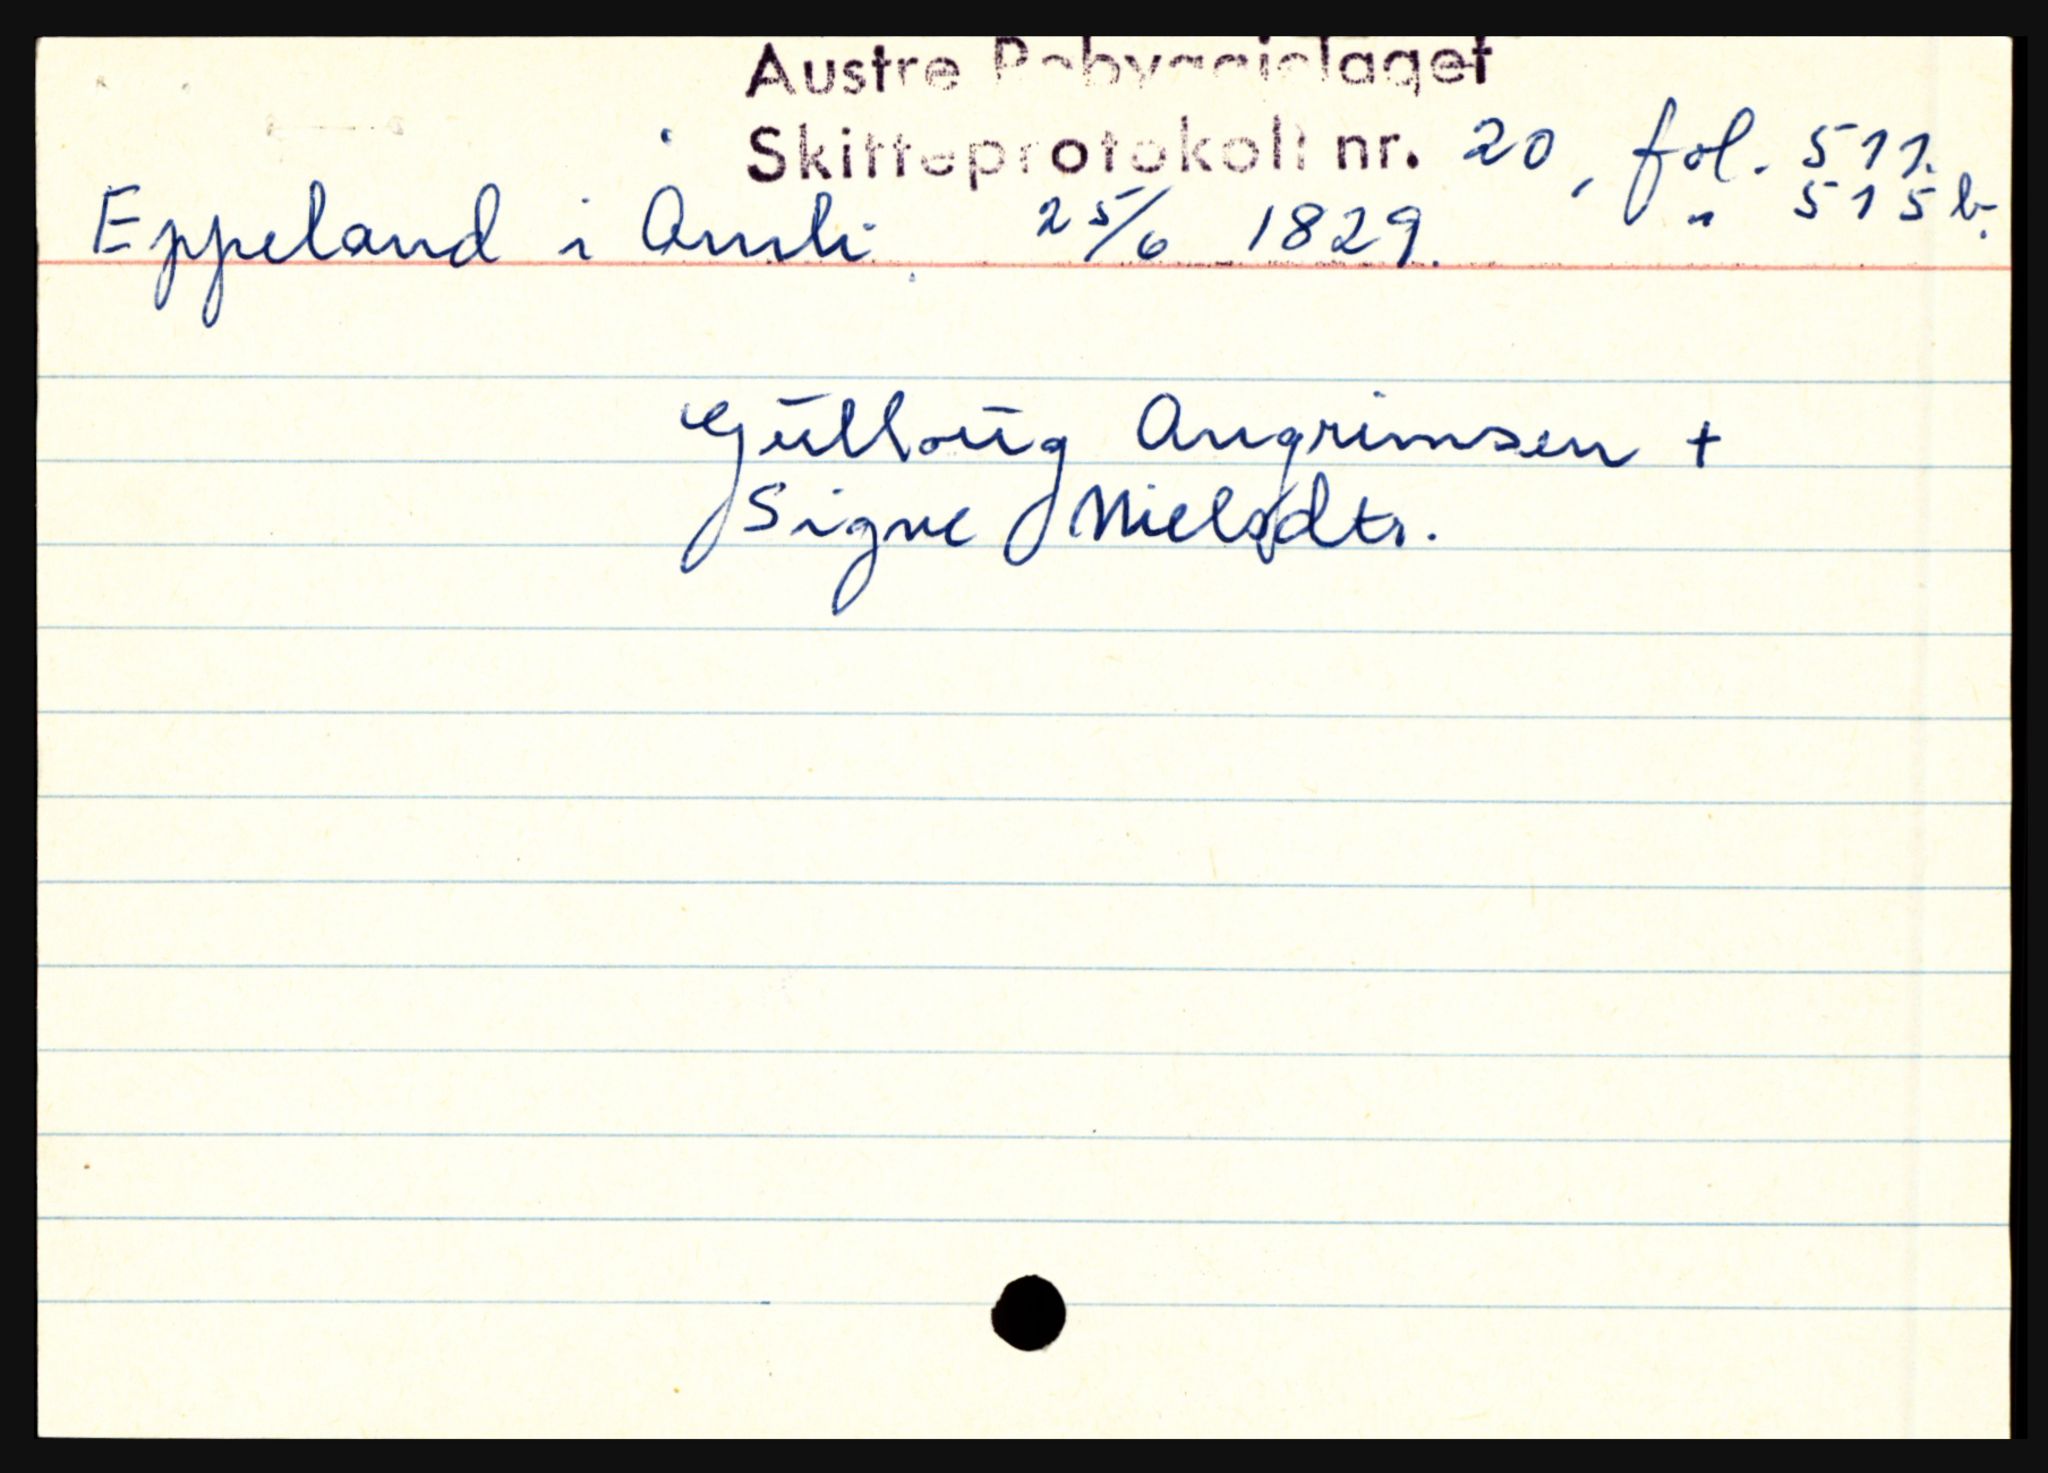 Austre Robyggjelaget
Skifteprotokoll nr. 20, fol. 511.
" 515b.
Eppeland i Åmli 25/6 1829.
Gullaug Angrimsen +
Signe Nielsdtr.